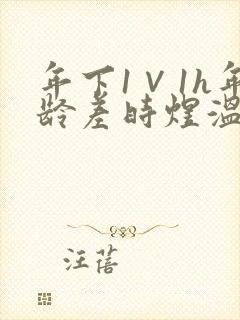 年下1V1h年
龄差时煌温
汪蓓